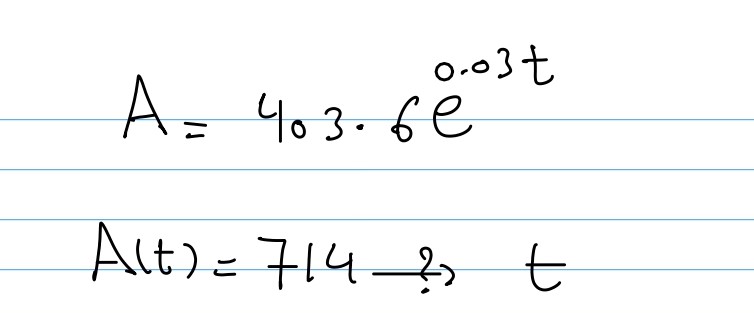 A = 403.6e^0.03t
A(t) = 714 —?→ t